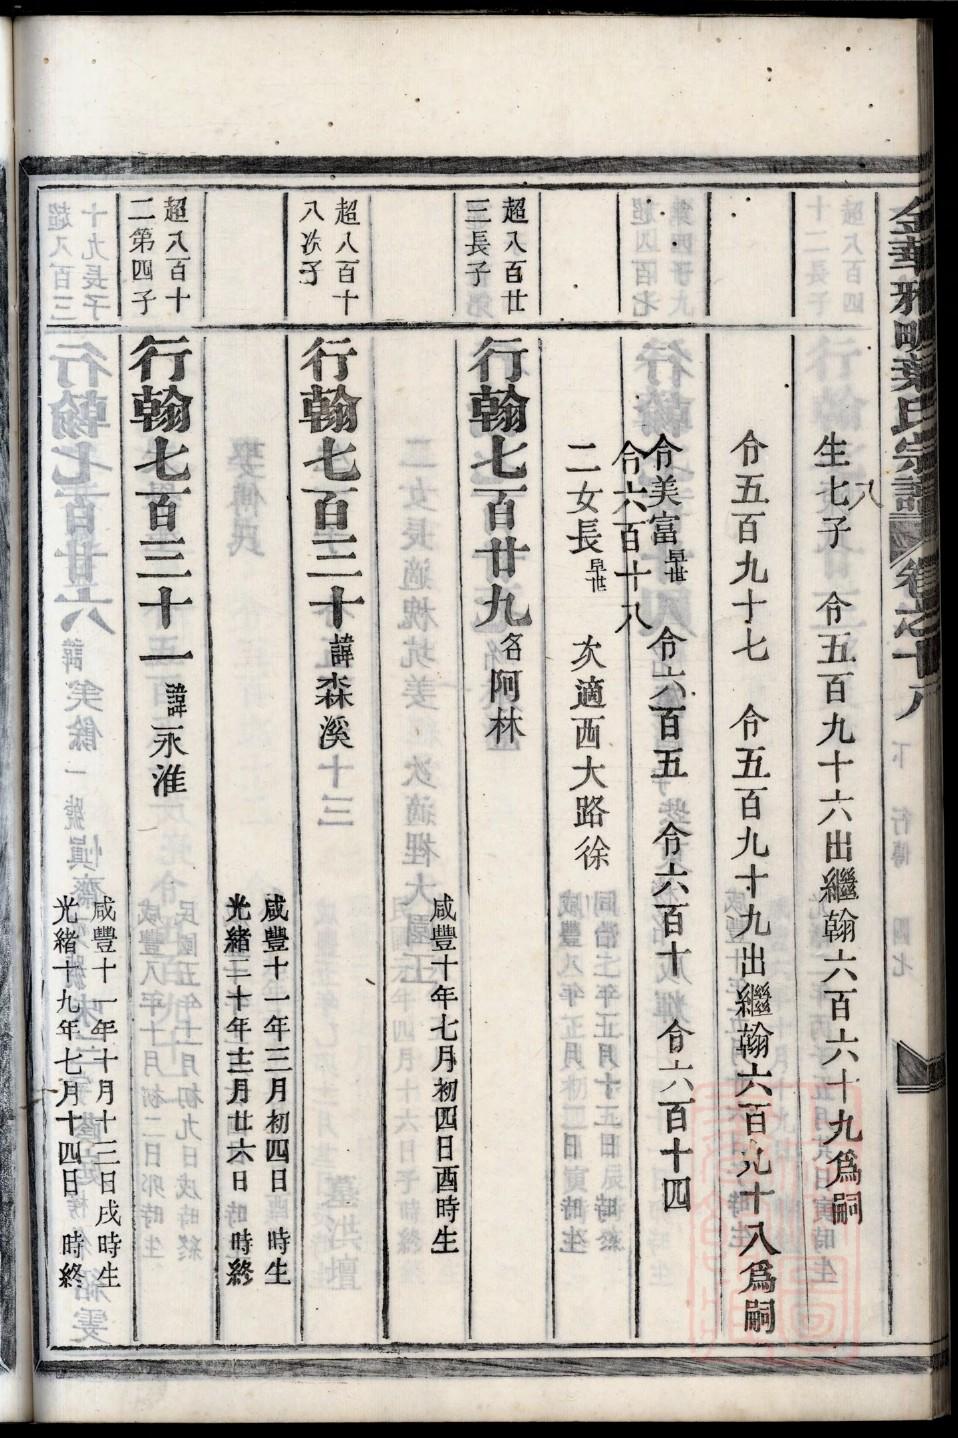 生七子　令五百九十六出繼翰六百六十九爲嗣
八
令五百九十七　令五百九十九出繼翰六百九十八爲嗣
令美富早世　令六百五　令六百十　令六百十四
令六百十八
二女長早世　次適西大路徐
超八百廿三長子
行翰七百廿九名阿林
咸豐十年七月初四日酉時生
超八百十八次子
行翰七百三十諱森溪
咸豐十一年三月初四日　時生
光緒二十年十二月廿六日　時終
超八百十二第四子
行翰七百三十一諱永淮
咸豐十一年十月十三日戌時生
光緒十九年七月十四日　時終